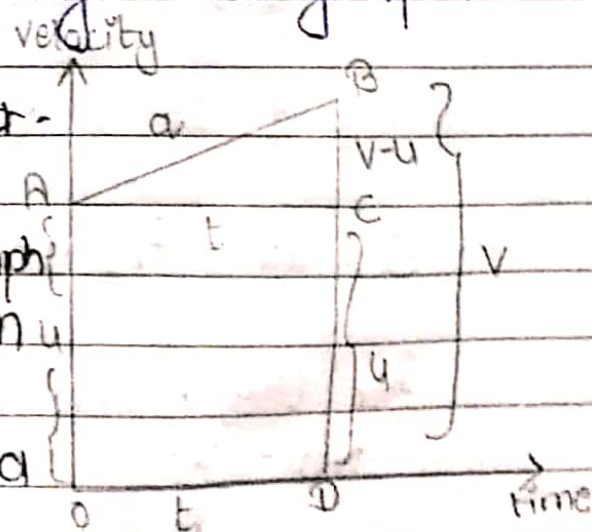 velocity
B
t-
a
V-u
A
C
t
ph
V
n u
u
a
O t D time